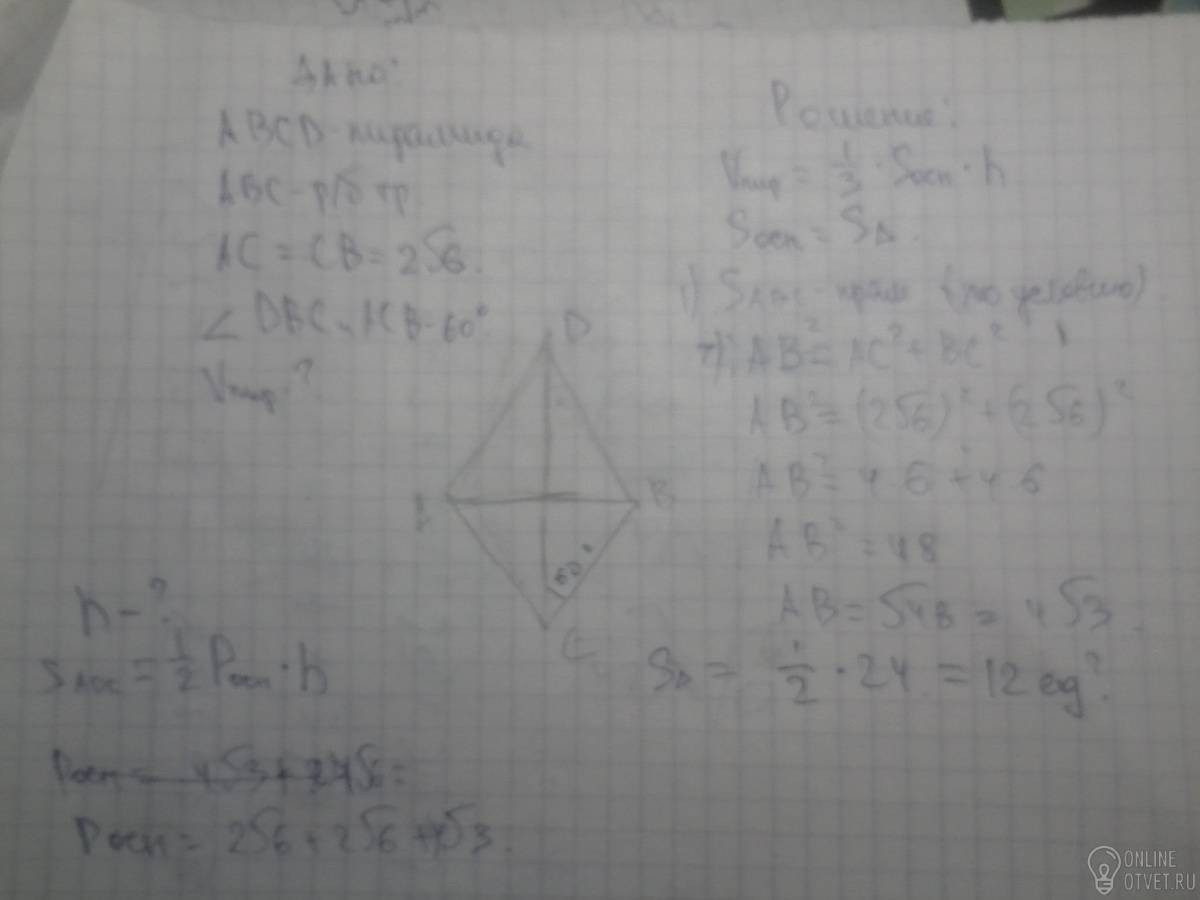 Дано:
ABCD-пирамида
ABC-р/б тр
AC = CB = 2√6.
∠ DBC и ACB-60°
Vпир ?
D
A
B
60°
C
h - ?
= 1/2 Pосн · h
Pосн = 2√6 + 2√6 + 4√3.
Решение:
Vпир = 1/3 · Sосн · h
Sосн = S∆.
1) (по условию)
AB² = AC² + BC²
AB² = (2√6)² + (2√6)²
AB² = 4·6 + 4·6
AB² = 48
AB = √48 = 4√3.
S∆ = 1/2 · 24 = 12 ед².
ONLINE
OTVET.RU